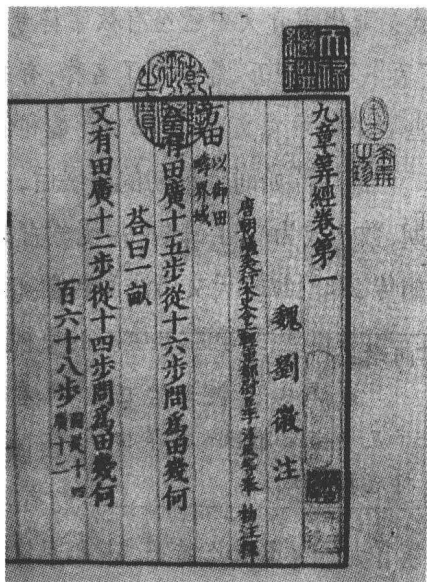 九章筭經卷第一
魏劉徽注
唐朝議大夫行太史令上輕車都尉李淳風等奉 注釋
方田以御田疇界域
今有田廣十五步從十六步問爲田幾何
荅曰一畝
又有田廣十二步從十四步問爲田幾何
百六十八步圖從十四廣十二